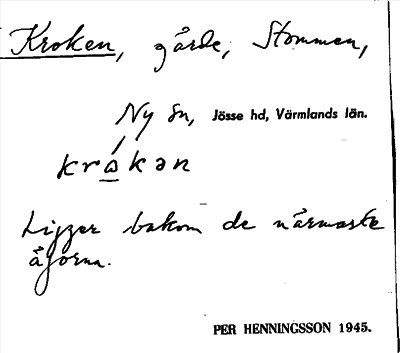 Kroken, gärde, Stommen,
Ny sn, Jösse hd, Värmlands län.
krωkən
Ligger bakom de närmaste
åsarna.
PER HENNINGSSON 1945.